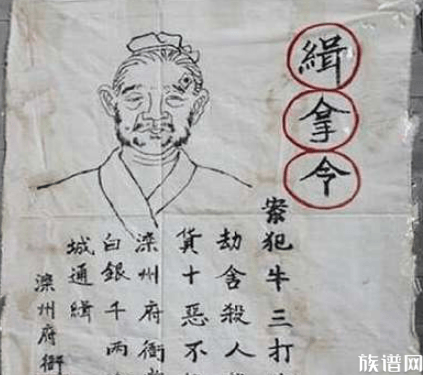 緝拿令
案犯牛三打
劫舍殺人
貨十惡不
滦州府衙
白銀千兩
城通緝
滦州府衙
族谱网